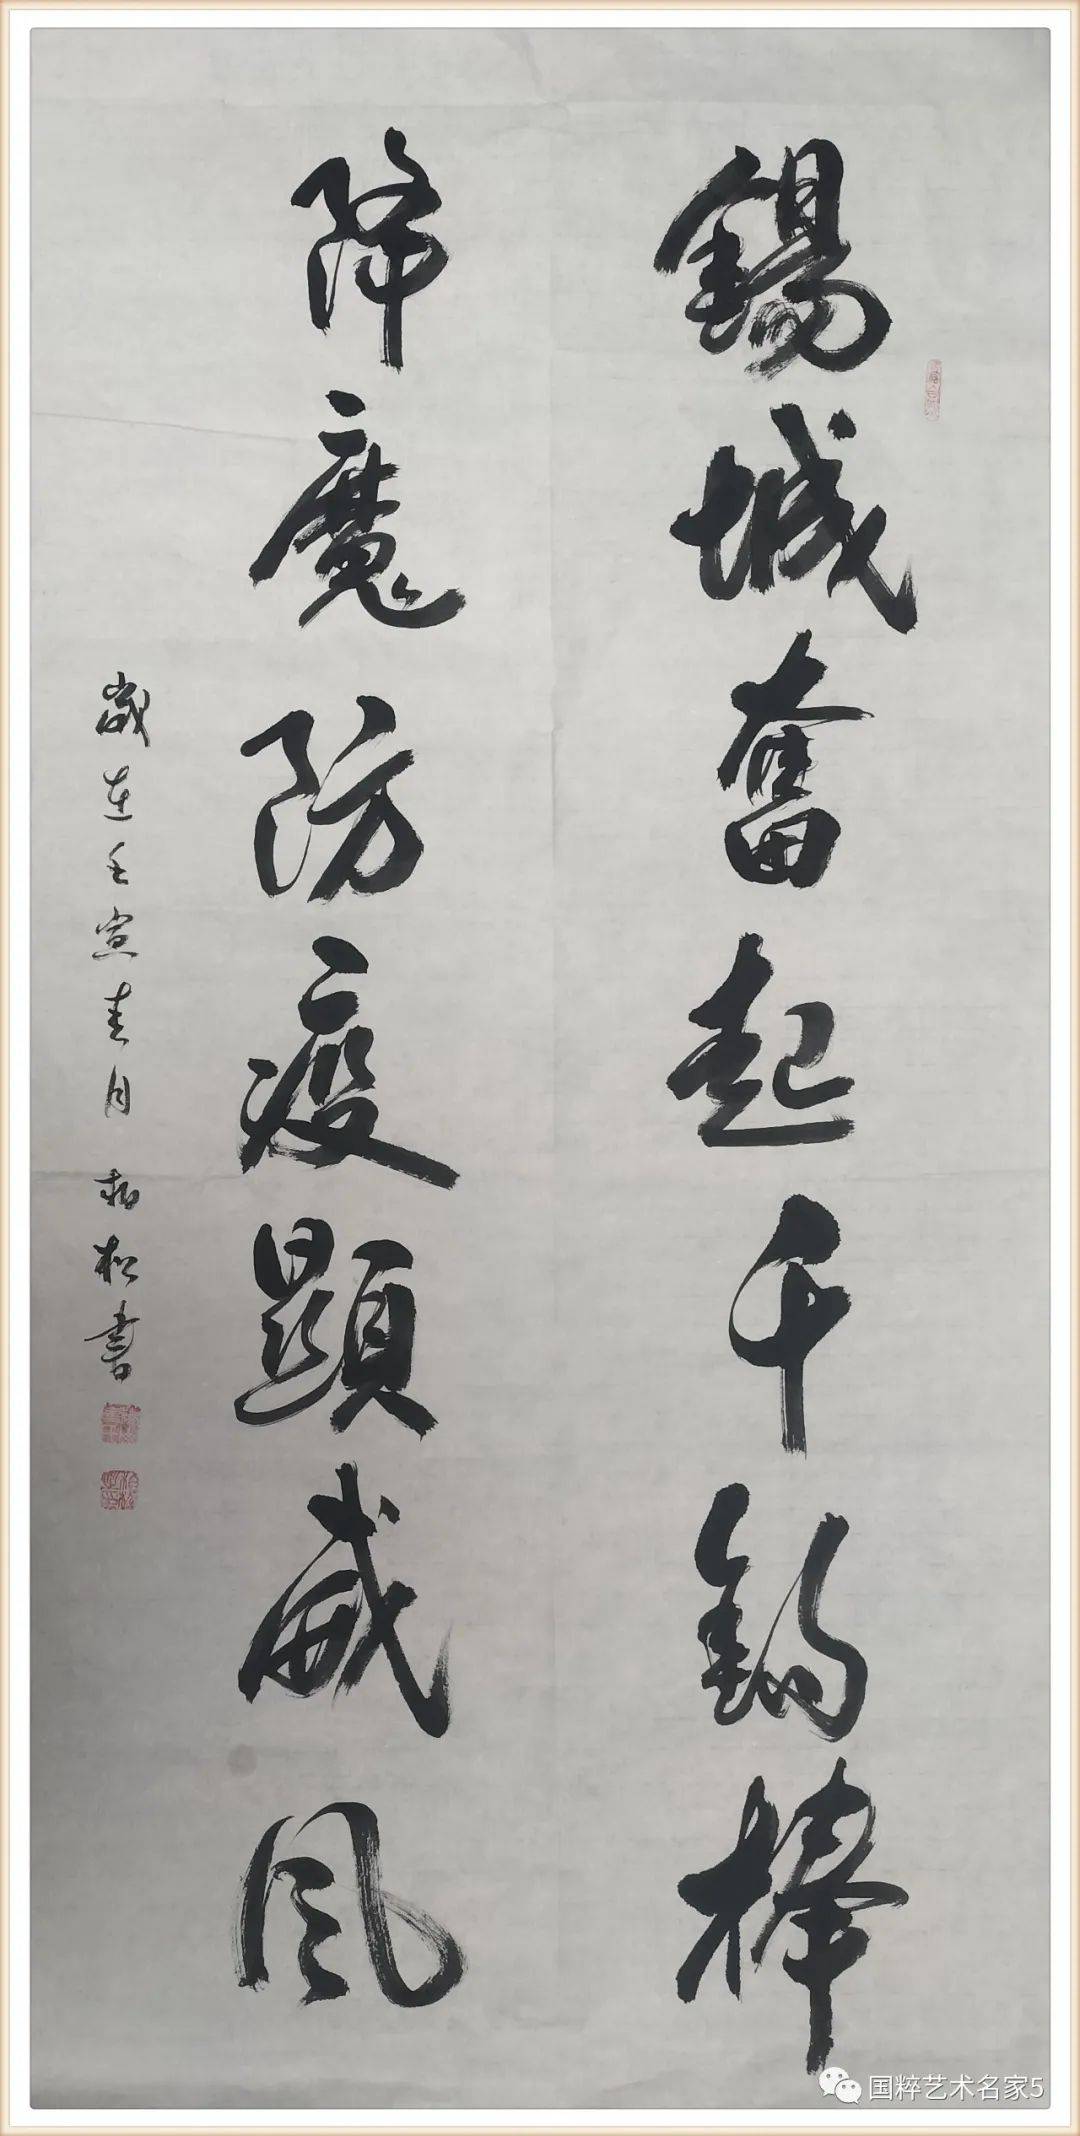 錫城奮起千鈞棒
降魔防疫顯威風
歲在壬寅春月 柏松書
国粹艺术名家5